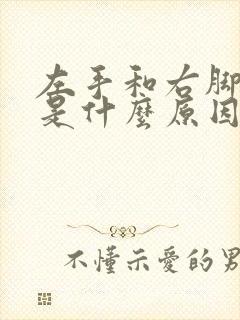 左手和右脚
是什麼原因
不懂示愛的男